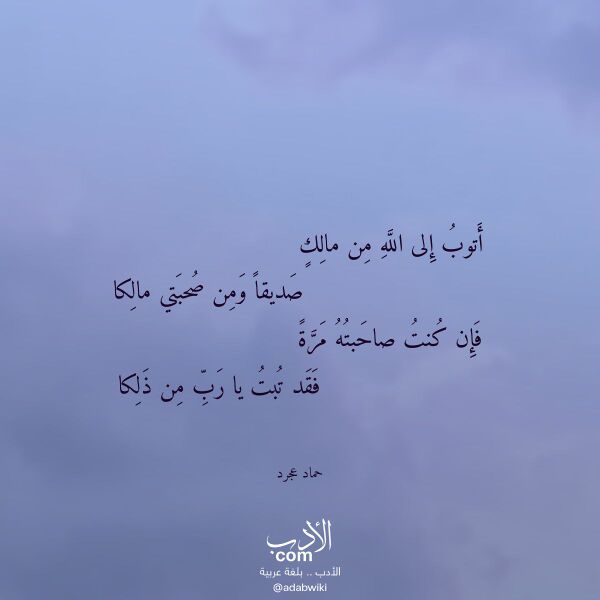 أَتوبُ إِلى اللَهِ مِن مالِكٍ
صَديقاً وَمِن صُحبَتي مالِكا
فَإِن كُنتُ صاحَبتُهُ مَرَّةً
فَقَد تُبتُ يا رَبِّ مِن ذَلِكا
حماد عجرد
الأدب
com
الأدب .. بلغة عربية
@adabwiki